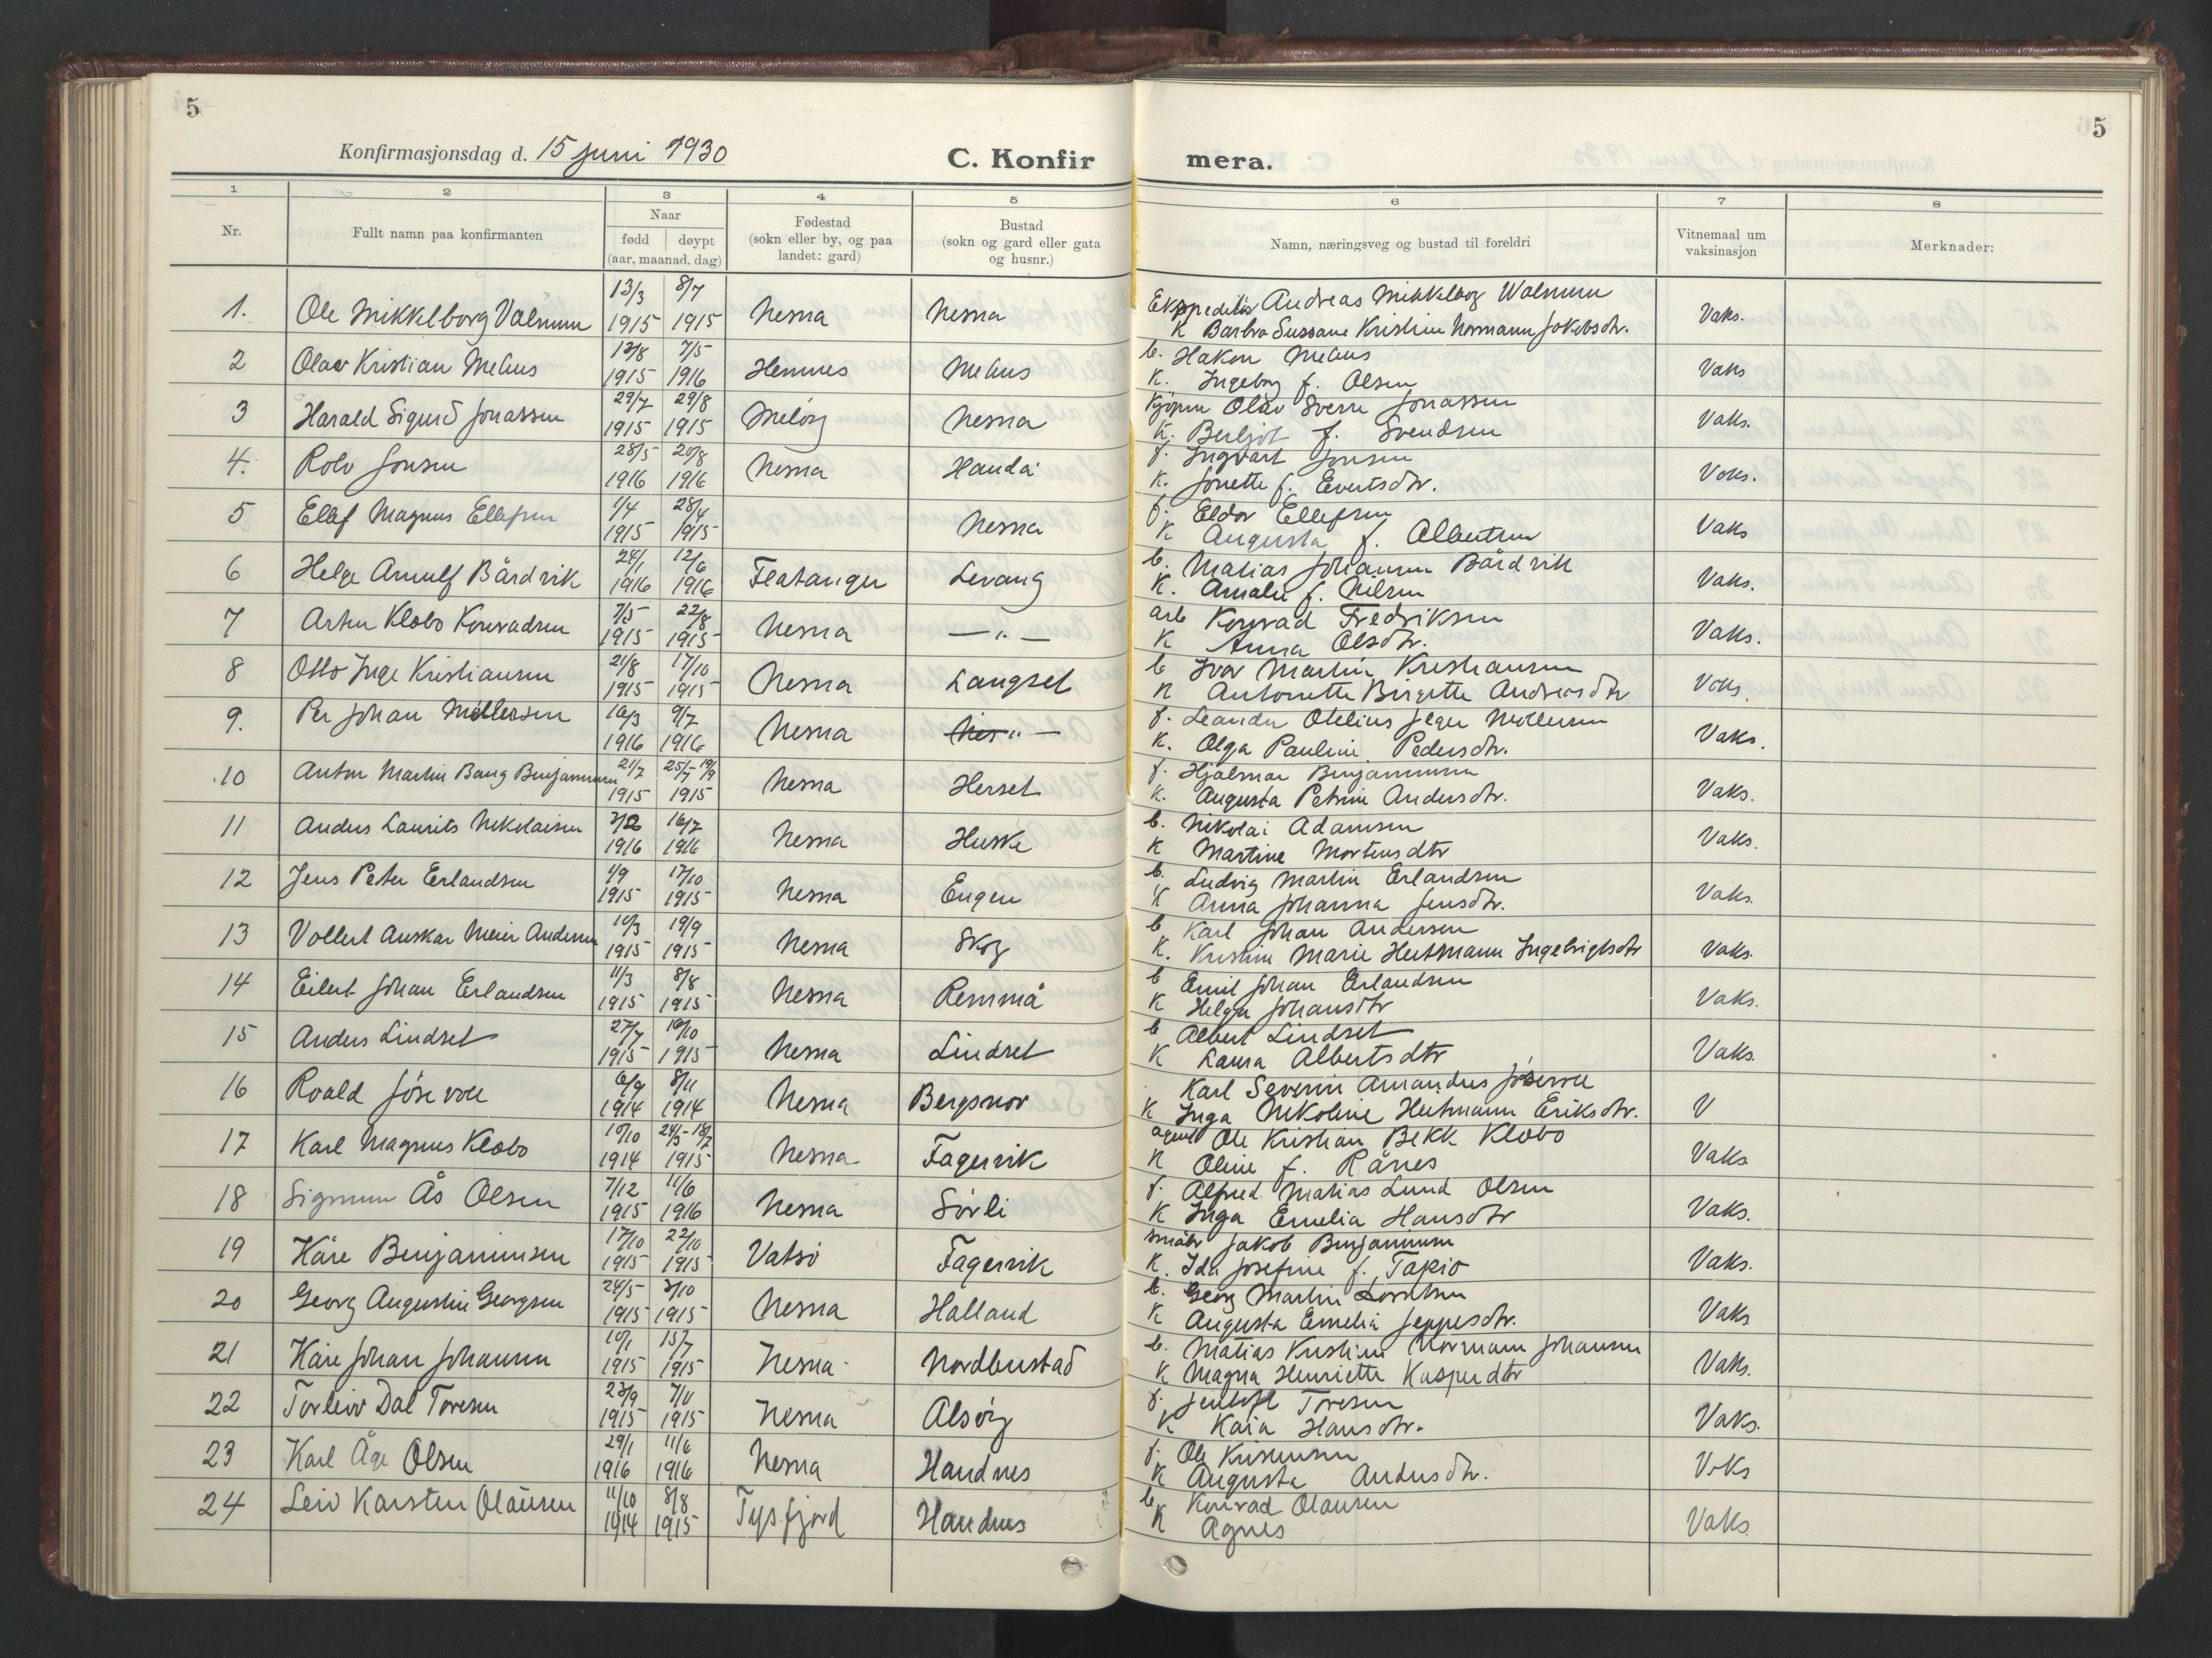 5
Konfirmasjonsdag d. 15 juni 1930
C. Konfirmera.
5
1 2 3 4 5 6 7 8
Nr. Fullt namn paa konfirmanten Naar fødd døypt (aar, maanad. dag) Fødestad (sokn eller by, og paa landet: gard) Bustad (sokn og gard eller gata og husnr.) Namn, næringsveg og bustad til foreldri Vitnemaal um vaksinasjon Merknader:
1. Ole Mikkelborg Valnum 13/3 1915 8/7 1915 Nesna Nesna Ekspeditør Andreas Mikkelborg Valnum Vaks.
K Barbro Sussane Kristine Normann Jakobsdtr.
2 Olav Kristian Mehus 13/8 1915 7/5 1916 Hemnes Mehus b. Håkon Mehus Vaks
K. Ingeborg f. Olsen
3 Harald Sigurd Jonassen 29/7 1915 29/8 1915 Meløy Nesna Kjøpm Olav Sverre Jonassen Vaks.
K. Berljot f. Svendsen
4. Rolv Jonsen 28/5 1916 20/8 1916 Nesna Handå f. Ingvart Jonsen Vaks.
K. Jonette f. Evertsdtr.
5 Ellef Magnus Ellefsen 1/4 1915 28/4 1915 Nesna f. Eldor Ellefsen Vaks
K Augusta f. Albertsen
6 Helge Arnulf Bårdvik 24/1 1916 12/6 1916 Flatanger Levang b. Matias Johansen Bårdvik Vaks.
K. Amalie f. Nilsen
7 Artur Klobo Konradsen 7/5 1915 22/8 1915 Nesna — " — arb Konrad Fredriksen Vaks.
K Anna Olsdtr.
8 Otto Inge Kristiansen 21/8 1915 17/10 1915 Nesna Langset b Ivar Martin Kristiansen Vaks.
K Antonette Birgitte Andreasdtr
9. Per Johan Møllersen 16/3 1916 9/7 1916 Nesna — " — f. Leander Otelius Jeger Møllersen Vaks.
K. Olga Pauline Pedersdtr.
10 Anton Martin Bang Benjaminsen 21/7 1915 25/7-19/9 1915 Nesna Herset f. Hjalmar Benjaminsen Vaks.
K. Augusta Petrine Andersdtr.
11 Anders Laurits Nikolaisen 1916 16/7 1916 Nesna Huske b. Nikolai Adamsen Vaks.
K Martine Mortensdtr
12 Jens Peter Erlandsen 4/9 1915 17/10 1915 Nesna Engen b. Ludvig Martin Erlandsen Vaks.
K Anna Johanna Jensdtr.
13 Vollert Anskar Meier Andersen 10/3 1915 19/9 1915 Nesna Skog b Karl Johan Andersen Vaks.
K. Kristine Marie Heitmann Ingebrigtsdtr
14 Eilert Johan Erlandsen 11/3 1915 8/8 1915 Nesna Remmå b Emil Johan Erlandsen Vaks.
K Helga Johansdtr
15 Anders Lindset 27/7 1915 10/10 1915 Nesna Lindset b Albert Lindset Vaks.
K Laura Albertsdtr
16 Roald Jósevoll 6/9 1914 8/11 1914 Nesna Bergsnov Karl Severin Amandus V
K Inga Nikoline Heitmann Eriksdtr.
17 Karl Magnus Klobo 10/10 1914 24/5-18/7 1915 Nesna Fagervik agent Ole Kristian Bekk Klobo Vaks
K Oline f. Rånes
18 Sigmun Ås Olsen 7/12 1915 11/6 1916 Nesna Sørli f. Alfred Matias Lund Olsen Vaks.
K Inga Emelia Hansdtr
19 Kåre Benjaminsen 17/10 1915 22/10 1915 Vatsø Fagervik småbr Jakob Benjaminsen Vaks.
K. Ida Josefine f. Tapio
20 Georg Augustin Georgsen 24/5 1915 3/10 1915 Nesna Halland b. Georg Martin Vaks
K Augusta Emelia Jeppesdtr.
21 Kåre Johan Johansen 10/1 1915 15/7 1915 Nesna Nordbustad b. Matias Kristian Normann Johansen Vaks.
K Magna Henriette Kasperdtr
22 Torleiv Dal Toresen 23/9 1915 7/11 1915 Nesna Alsøy f. Jentoft Toresen Vaks.
K Kaia Hansdtr.
23 Karl Åge Olsen 29/1 1916 11/6 1916 Nesna Handnes f. Ole Kristensen Vaks
K Augusta Andersdtr.
24 Leiv Karsten Olaüsen 11/10 1914 8/8 1915 Tysfjord Handnes b Konrad Olausen Vaks
K Agnes